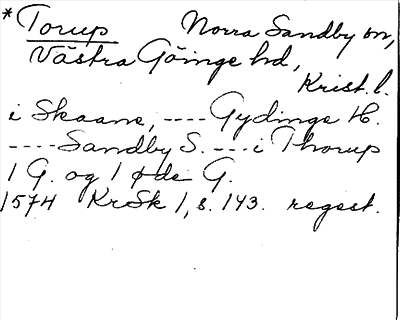 * Torup Norra Sandby sn,
Västra Göinge hd,
Krist. l.
i Skaane, ---- Gydinge H.
---- Sandby S. ---- i Thorup
1 G. og 1 øde G.
1574 KrSk 1, s. 143. regest.